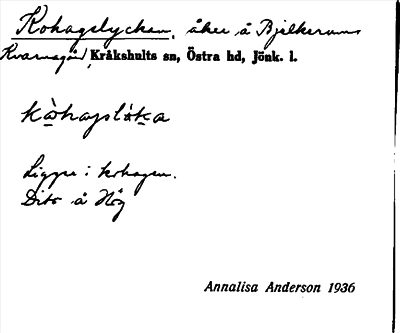 Kohagslycken, åker å Bjelkerums
Kvarnsgård, Kråkshults sn, Östra hd, Jönk. l.
kòhagslỳka
Ligger i kohagen.
Dito å Hög
Annalisa Anderson 1936